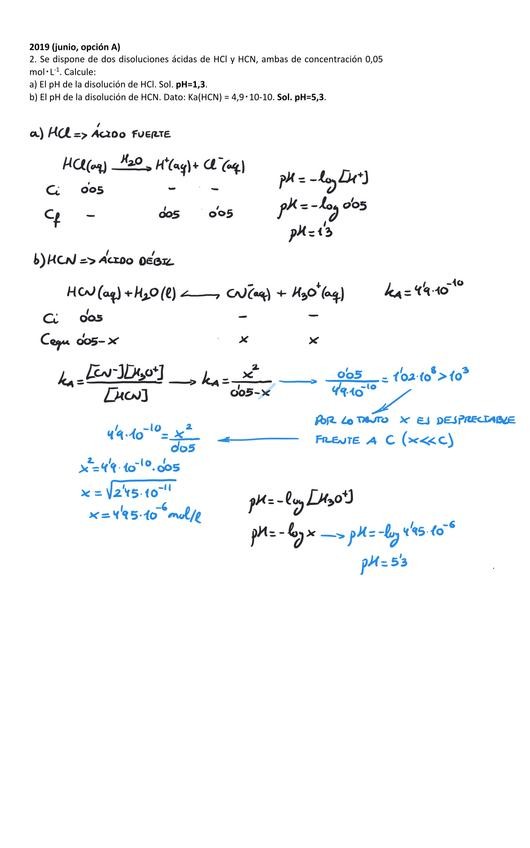 2019 (junio, opción A)
2. Se dispone de dos disoluciones ácidas de HCl y HCN, ambas de concentración 0,05
mol·L⁻¹. Calcule:
a) El pH de la disolución de HCl. Sol. pH=1,3.
b) El pH de la disolución de HCN. Dato: Ka(HCN) = 4,9·10-10. Sol. pH=5,3.
a) HCl => ÁCIDO FUERTE
HCl(aq) —H2O→ H⁺(aq) + Cl⁻(aq)
Ci 0'05 - -
Cf - 0'05 0'05
pH = -log [H⁺]
pH = -log 0'05
pH = 1'3
b) HCN => ÁCIDO DÉBIL
HCN(aq) + H2O(l) ⟷ CN⁻(aq) + H3O⁺(aq) KA = 4'9·10⁻¹⁰
Ci 0'05 - -
Cequ 0'05-x x x
KA = [CN⁻][H3O⁺] / [HCN] → KA = x² / 0'05-x → 0'05 / 4'9·10⁻¹⁰ = 1'02·10⁸ > 10³
POR LO TANTO X ES DESPRECIABLE
FRENTE A C (x<<C)
4'9·10⁻¹⁰ = x² / 0'05
x² = 4'9·10⁻¹⁰·0'05
x = √2'45·10⁻¹¹
x = 4'95·10⁻⁶ mol/l
pH = -log [H3O⁺]
pH = -log x → pH = -log 4'95·10⁻⁶
pH = 5'3